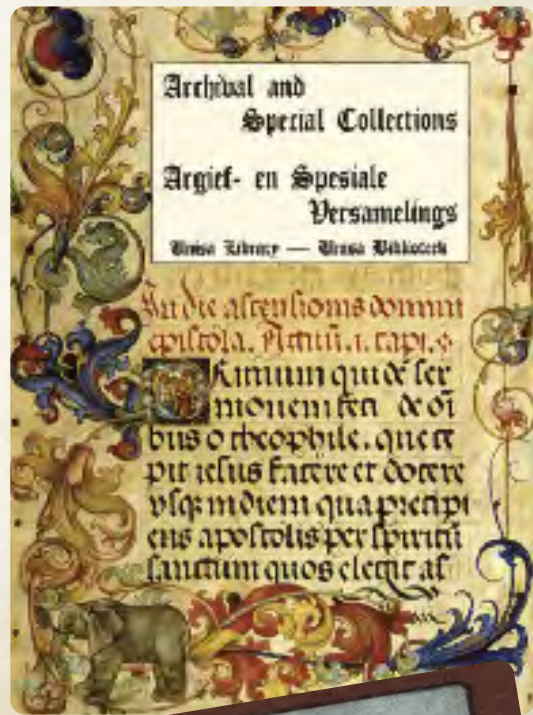 Archival and
Special Collections
Argief- en Spesiale
Versamelings
Unisa Library — Unisa Biblioteek
In die ascensionis domini
epistola. Actuū. 1. capi.
Rimum quidē ser
monem feci de oī
bus o theophile, que ce
pit iesus facere et docere
vsq; in diem qua precipi
ens apostolis per spiritū
sanctum quos elegit as